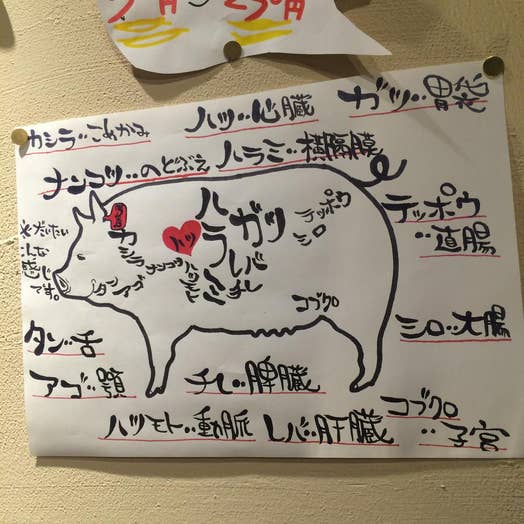 カシラ…こめかみ
ハツ…心臓
ガツ…胃袋
ナンコツ…のどぶえ
ハラミ…横隔膜
テッポウ
…直腸
※だいたい
こんな
感じ
です。
ハツ
カシラ
ナンコツ
ハツモト
ハラミ
ガツ
レバ
チレ
テッポウ
シロ
コブクロ
タン
アゴ
タン…舌
シロ…大腸
アゴ…顎
チレ…脾臓
コブクロ
…子宮
ハツモト…動脈
レバ…肝臓